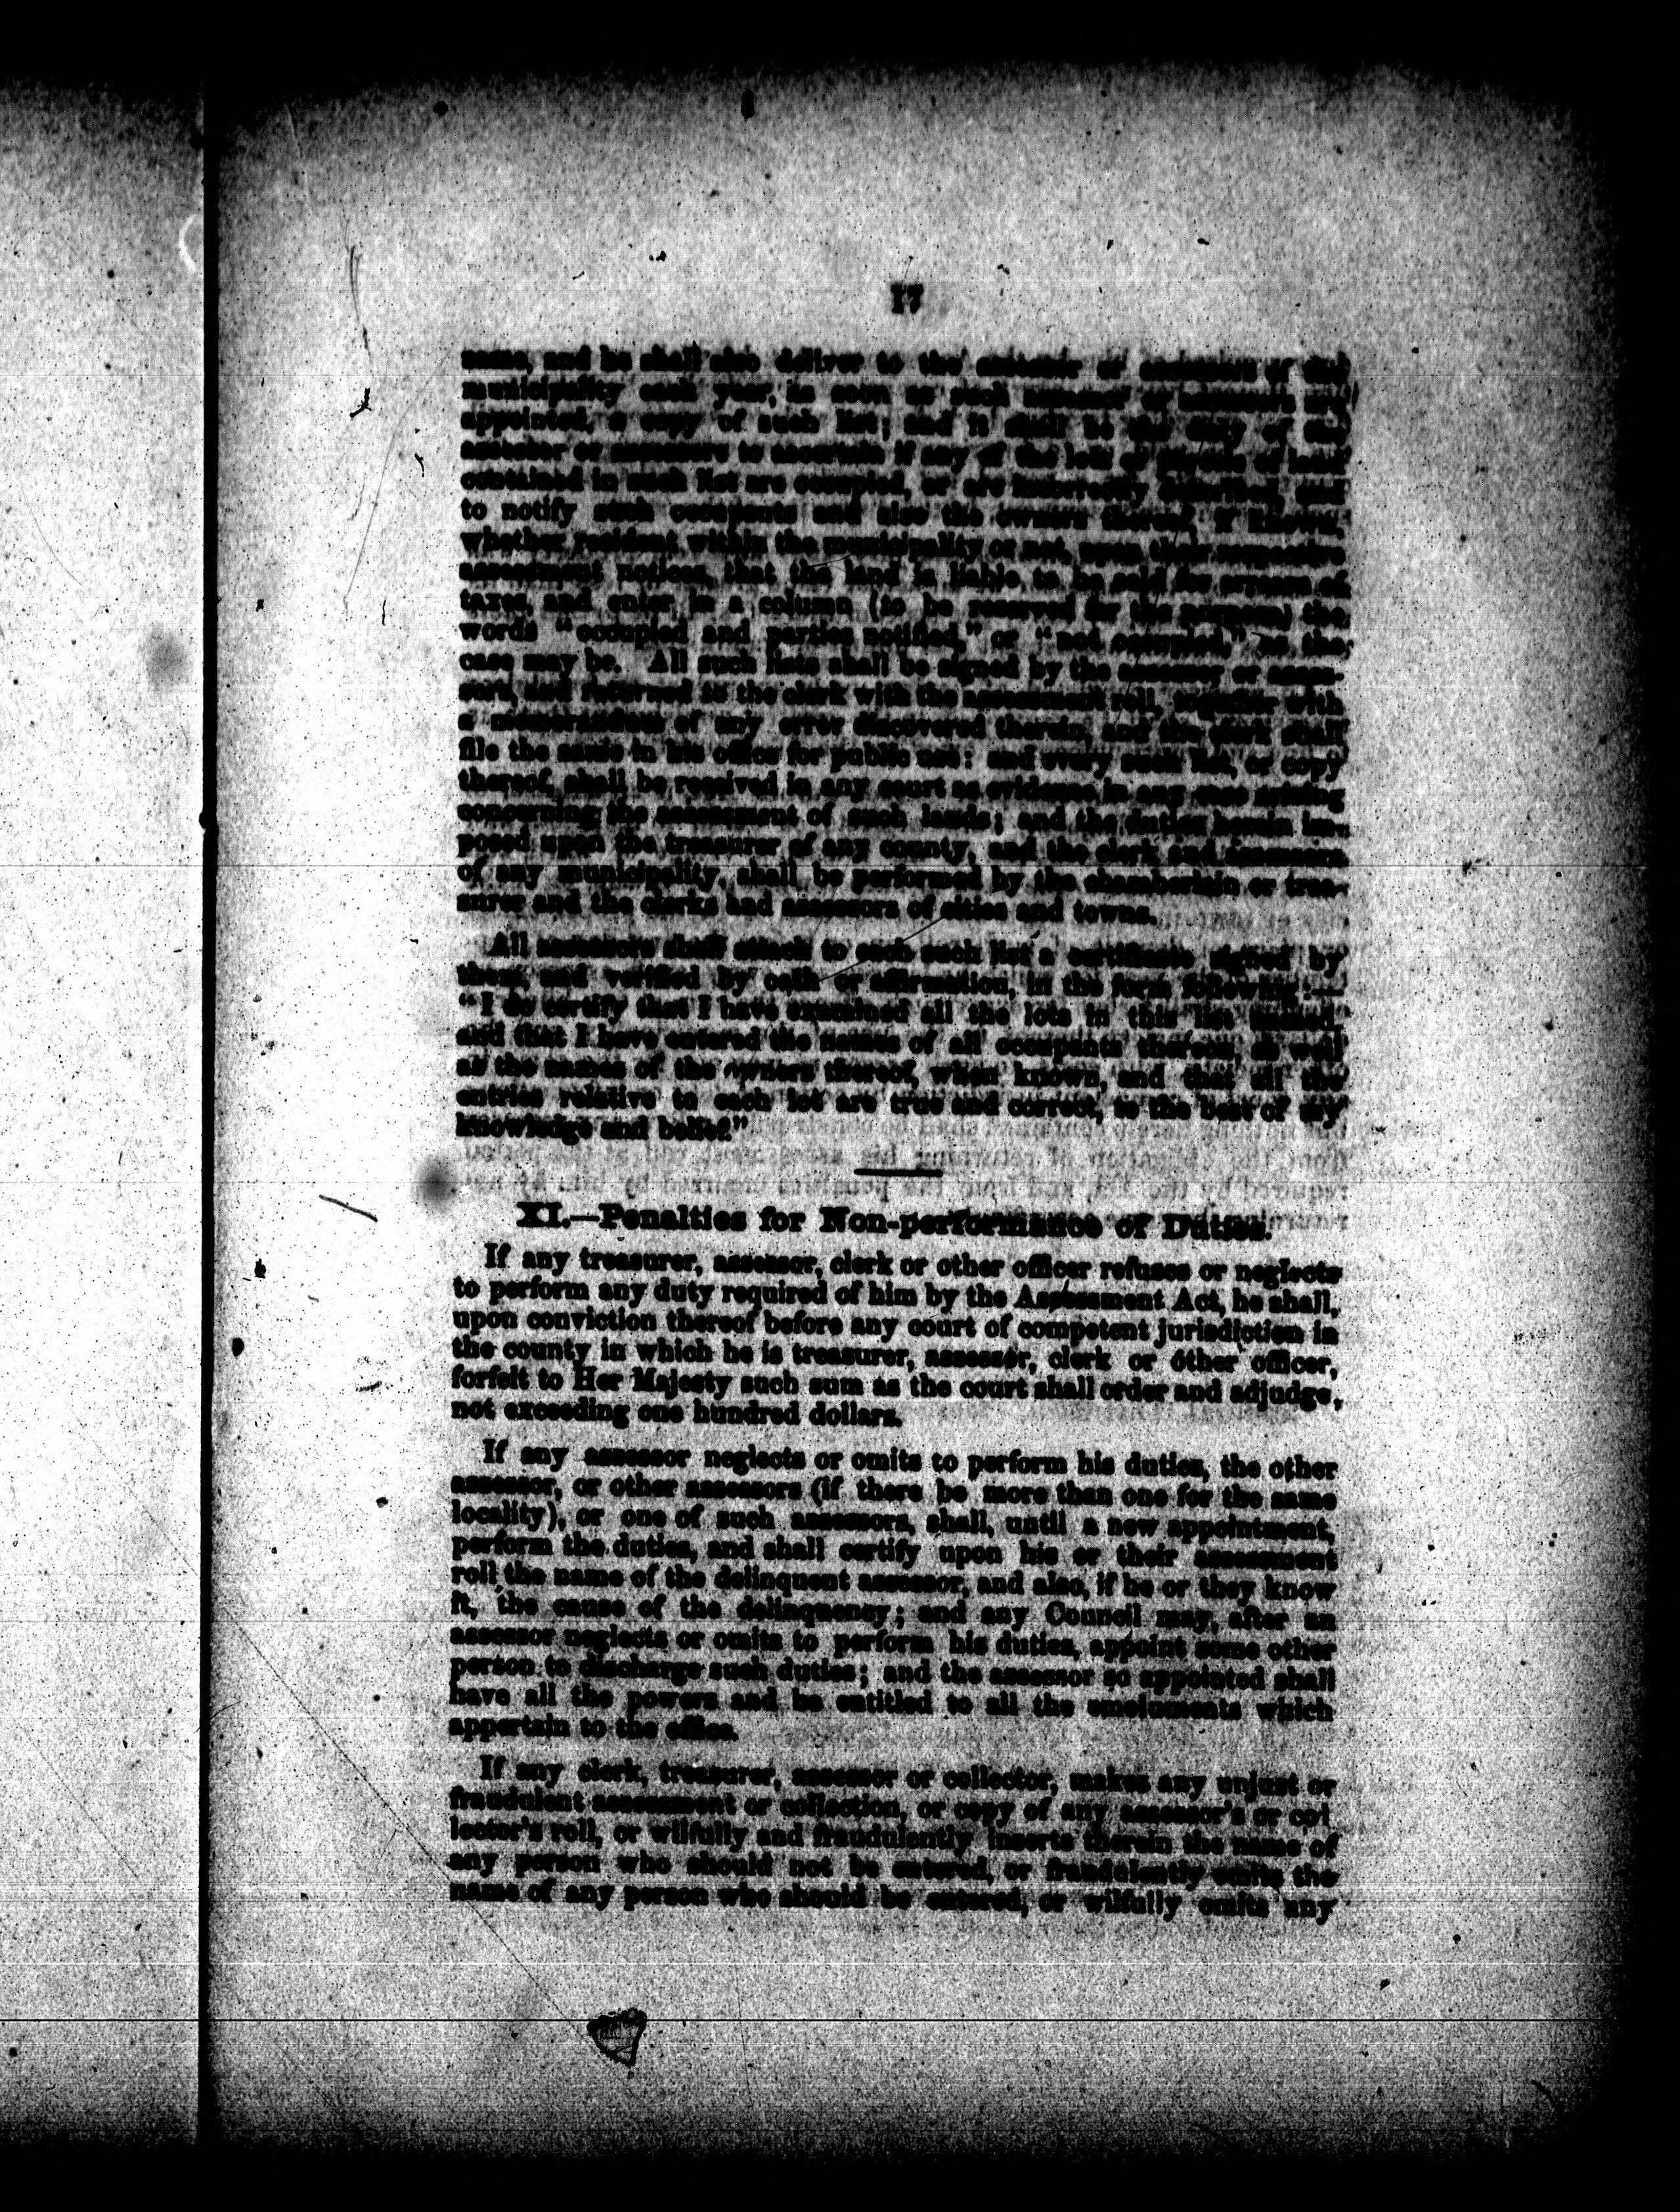 17
same, and he shall also deliver to the assessor or assessors of the
municipality each year, as soon as such assessor or assessors are
appointed, a copy of such list; and it shall be the duty of the
assessor or assessors to ascertain if any of the lots or parcels of land
contained in such list are occupied, or are incorrectly described, and
to notify such occupants and also the owners thereof, if known,
whether resident within the municipality or not, upon their respective
assessment notices, that the land is liable to be sold for arrears of
taxes, and enter in a column (to be reserved for the purpose) the
words "occupied and parties notified," or "not occupied," as the
case may be. All such lists shall be signed by the assessor or asses-
sors, and returned to the clerk with the assessment roll, together with
a memorandum of any error discovered therein, and the clerk shall
file the same in his office for public use: and every such list, or copy
thereof, shall be received in any court as evidence in any case arising
concerning the assessment of such lands; and the duties herein im-
posed upon the treasurer of any county, and the clerk and assessors
of any municipality, shall be performed by the chamberlain or trea-
surer and the clerks and assessors of cities and towns.
All assessors shall attach to each such list a certificate signed by
them, and verified by oath or affirmation, in the form following:—
"I do certify that I have examined all the lots in this list named,
and that I have entered the names of all occupants thereon, as well
as the names of the owners thereof, when known, and that all the
entries relative to each lot are true and correct, to the best of my
knowledge and belief."
XI.—Penalties for Non-performance of Duties.
If any treasurer, assessor, clerk or other officer refuses or neglects
to perform any duty required of him by the Assessment Act, he shall,
upon conviction thereof before any court of competent jurisdiction in
the county in which he is treasurer, assessor, clerk or other officer,
forfeit to Her Majesty such sum as the court shall order and adjudge,
not exceeding one hundred dollars.
If any assessor neglects or omits to perform his duties, the other
assessor, or other assessors (if there be more than one for the same
locality), or one of such assessors, shall, until a new appointment,
perform the duties, and shall certify upon his or their assessment
roll the name of the delinquent assessor, and also, if he or they know
it, the cause of the delinquency; and any Council may, after an
assessor neglects or omits to perform his duties, appoint some other
person to discharge such duties; and the assessor so appointed shall
have all the powers and be entitled to all the emoluments which
appertain to the office.
If any clerk, treasurer, assessor or collector, makes any unjust or
fraudulent assessment or collection, or copy of any assessor's or col
lector's roll, or wilfully and fraudulently inserts therein the name of
any person who should not be entered, or fraudulently omits the
name of any person who should be entered, or wilfully omits any